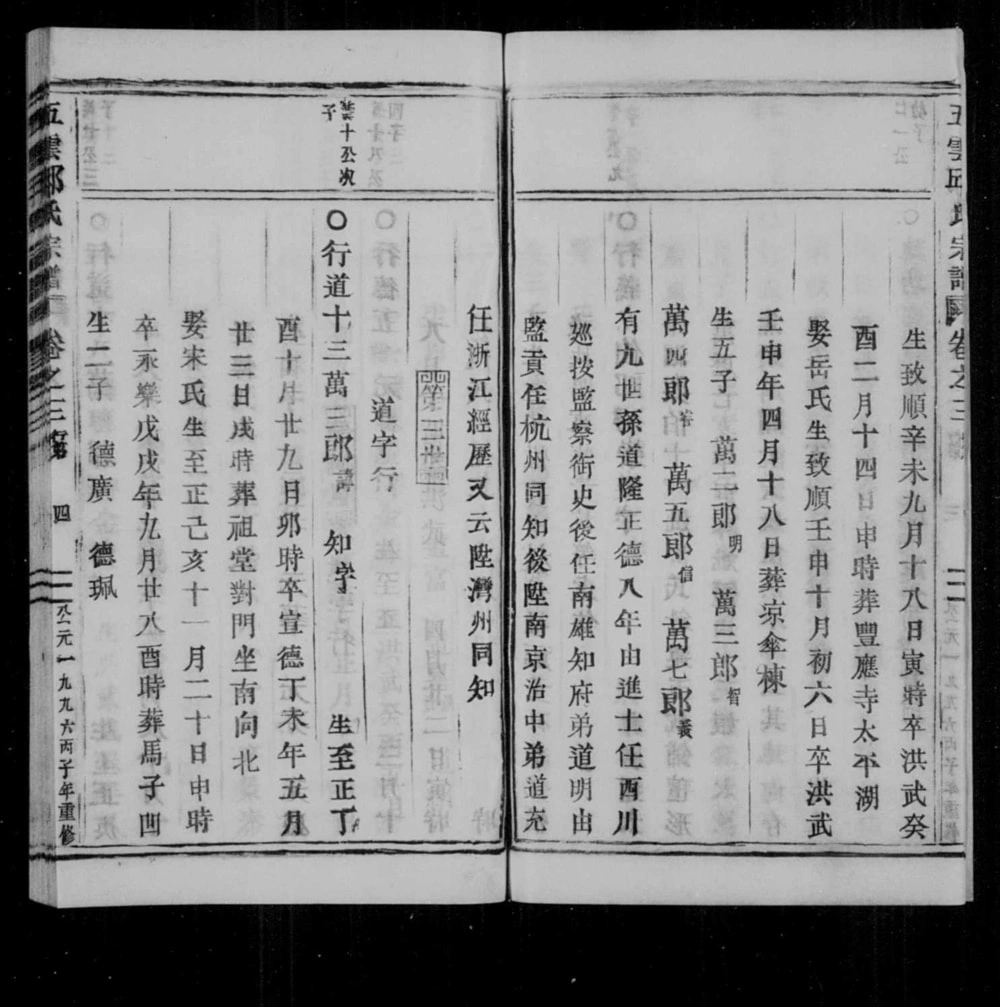 五雲邱氏宗譜 卷之三
生致順辛未九月十八日寅時卒洪武癸
酉二月十四日申時葬豐應寺太不湖
娶岳氏生致順壬申十月初六日卒洪武
壬申年四月十八日葬凉傘棟
生五子 萬二郎明 萬三郎智
萬四郎 萬五郎信 萬七郎義
有九世孫道隆正德八年由進士任西川
廵按監察衙史後任南雄知府弟道明由
監貢任杭州同知後陞南京治中弟道充
任浙江經歷又云陞灣州同知
第三世
道字行
十公次子
○行道十三萬三郎諱 知字 生至正丁
酉十月廿九日卯時卒宣德丁未年五月
廿三日戌時葬祖堂對門坐南向北
娶宋氏生至正己亥十一月二十日申時
卒永樂戊戌年九月廿八酉時葬馬子凹
生二子 德廣 德珮
五雲邱氏宗譜 卷之三 四 公元一九九六丙子年重修